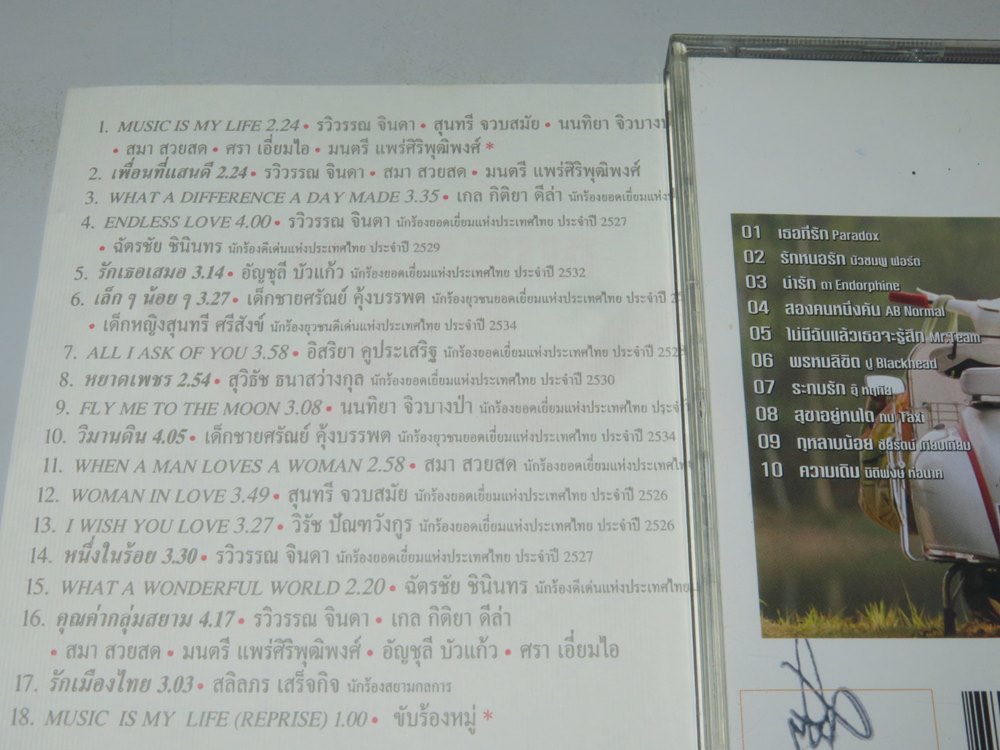 1. MUSIC IS MY LIFE 2.24 • รวิวรรณ จินดา • สุนทรี จวบสมัย • นนทิยา จิวบางป
• สมา สวยสด • ศรา เอี่ยมไอ • มนตรี แพร่ศิริพุฒิพงศ์ *
2. เพื่อนที่แสนดี 2.24 • รวิวรรณ จินดา • สมา สวยสด • มนตรี แพร่ศิริพุฒิพงศ์
3. WHAT A DIFFERENCE A DAY MADE 3.35 • เกล กิติยา ดีล่า นักร้องยอดเยี่ยมแห่ง
4. ENDLESS LOVE 4.00 • รวิวรรณ จินดา นักร้องยอดเยี่ยมแห่งประเทศไทย ประจำปี 2527
• ฉัตรชัย ชินินทร นักร้องดีเด่นแห่งประเทศไทย ประจำปี 2529
5. รักเธอเสมอ 3.14 • อัญชุลี บัวแก้ว นักร้องยอดเยี่ยมแห่งประเทศไทย ประจำปี 2532
6. เล็ก ๆ น้อย ๆ 3.27 • เด็กชายศรัณย์ คุ้งบรรพต นักร้องยุวชนยอดเยี่ยมแห่งประเทศไทย ประจำปี
• เด็กหญิงสุนทรี ศรีสังข์ นักร้องยุวชนดีเด่นแห่งประเทศไทย ประจำปี 2534
7. ALL I ASK OF YOU 3.58 • อิสริยา คูประเสริฐ นักร้องยอดเยี่ยมแห่งประเทศไทย ประจำปี 252
8. หยาดเพชร 2.54 • สุวิธัช ธนาสว่างกุล นักร้องยอดเยี่ยมแห่งประเทศไทย ประจำปี 2530
9. FLY ME TO THE MOON 3.08 • นนทิยา จิวบางป่า นักร้องยอดเยี่ยมแห่งประเทศไทย ประจำ
10. วิมานดิน 4.05 • เด็กชายศรัณย์ คุ้งบรรพต นักร้องยุวชนยอดเยี่ยมแห่งประเทศไทย ประจำปี 2534
11. WHEN A MAN LOVES A WOMAN 2.58 • สมา สวยสด นักร้องยอดเยี่ยมแห่งประเทศไทย
12. WOMAN IN LOVE 3.49 • สุนทรี จวบสมัย นักร้องยอดเยี่ยมแห่งประเทศไทย ประจำปี 2526
13. I WISH YOU LOVE 3.27 • วิรัช ปัณฑวังกูร นักร้องยอดเยี่ยมแห่งประเทศไทย ประจำปี 2526
14. หนึ่งในร้อย 3.30 • รวิวรรณ จินดา นักร้องยอดเยี่ยมแห่งประเทศไทย ประจำปี 2527
15. WHAT A WONDERFUL WORLD 2.20 • ฉัตรชัย ชินินทร นักร้องดีเด่นแห่งประเทศไทย
16. คุณค่ากลุ่มสยาม 4.17 • รวิวรรณ จินดา • เกล กิติยา ดีล่า
• สมา สวยสด • มนตรี แพร่ศิริพุฒิพงศ์ • อัญชุลี บัวแก้ว • ศรา เอี่ยมไอ
17. รักเมืองไทย 3.03 • สลิลภร เสร็จกิจ นักร้องสยามกลการ
18. MUSIC IS MY LIFE (REPRISE) 1.00 • ขับร้องหมู่ *
01 เธอที่รัก Paradox
02 รักหนอรัก บัวชมพู ฟอร์ด
03 น่ารัก ดา Endorphine
04 สองคนหนึ่งคัน AB Normal
05 ไม่มีฉันแล้วเธอจะรู้สึก Mr.Team
06 พรหมลิขิต ปู Blackhead
07 ระทมรัก
08 สุขาอยู่หนใด กบ Taxi
09 กุหลาบน้อย ชัยรัตน์ เทียบเทียม
10 ความเดิม นิติพงษ์ ห่อนาค